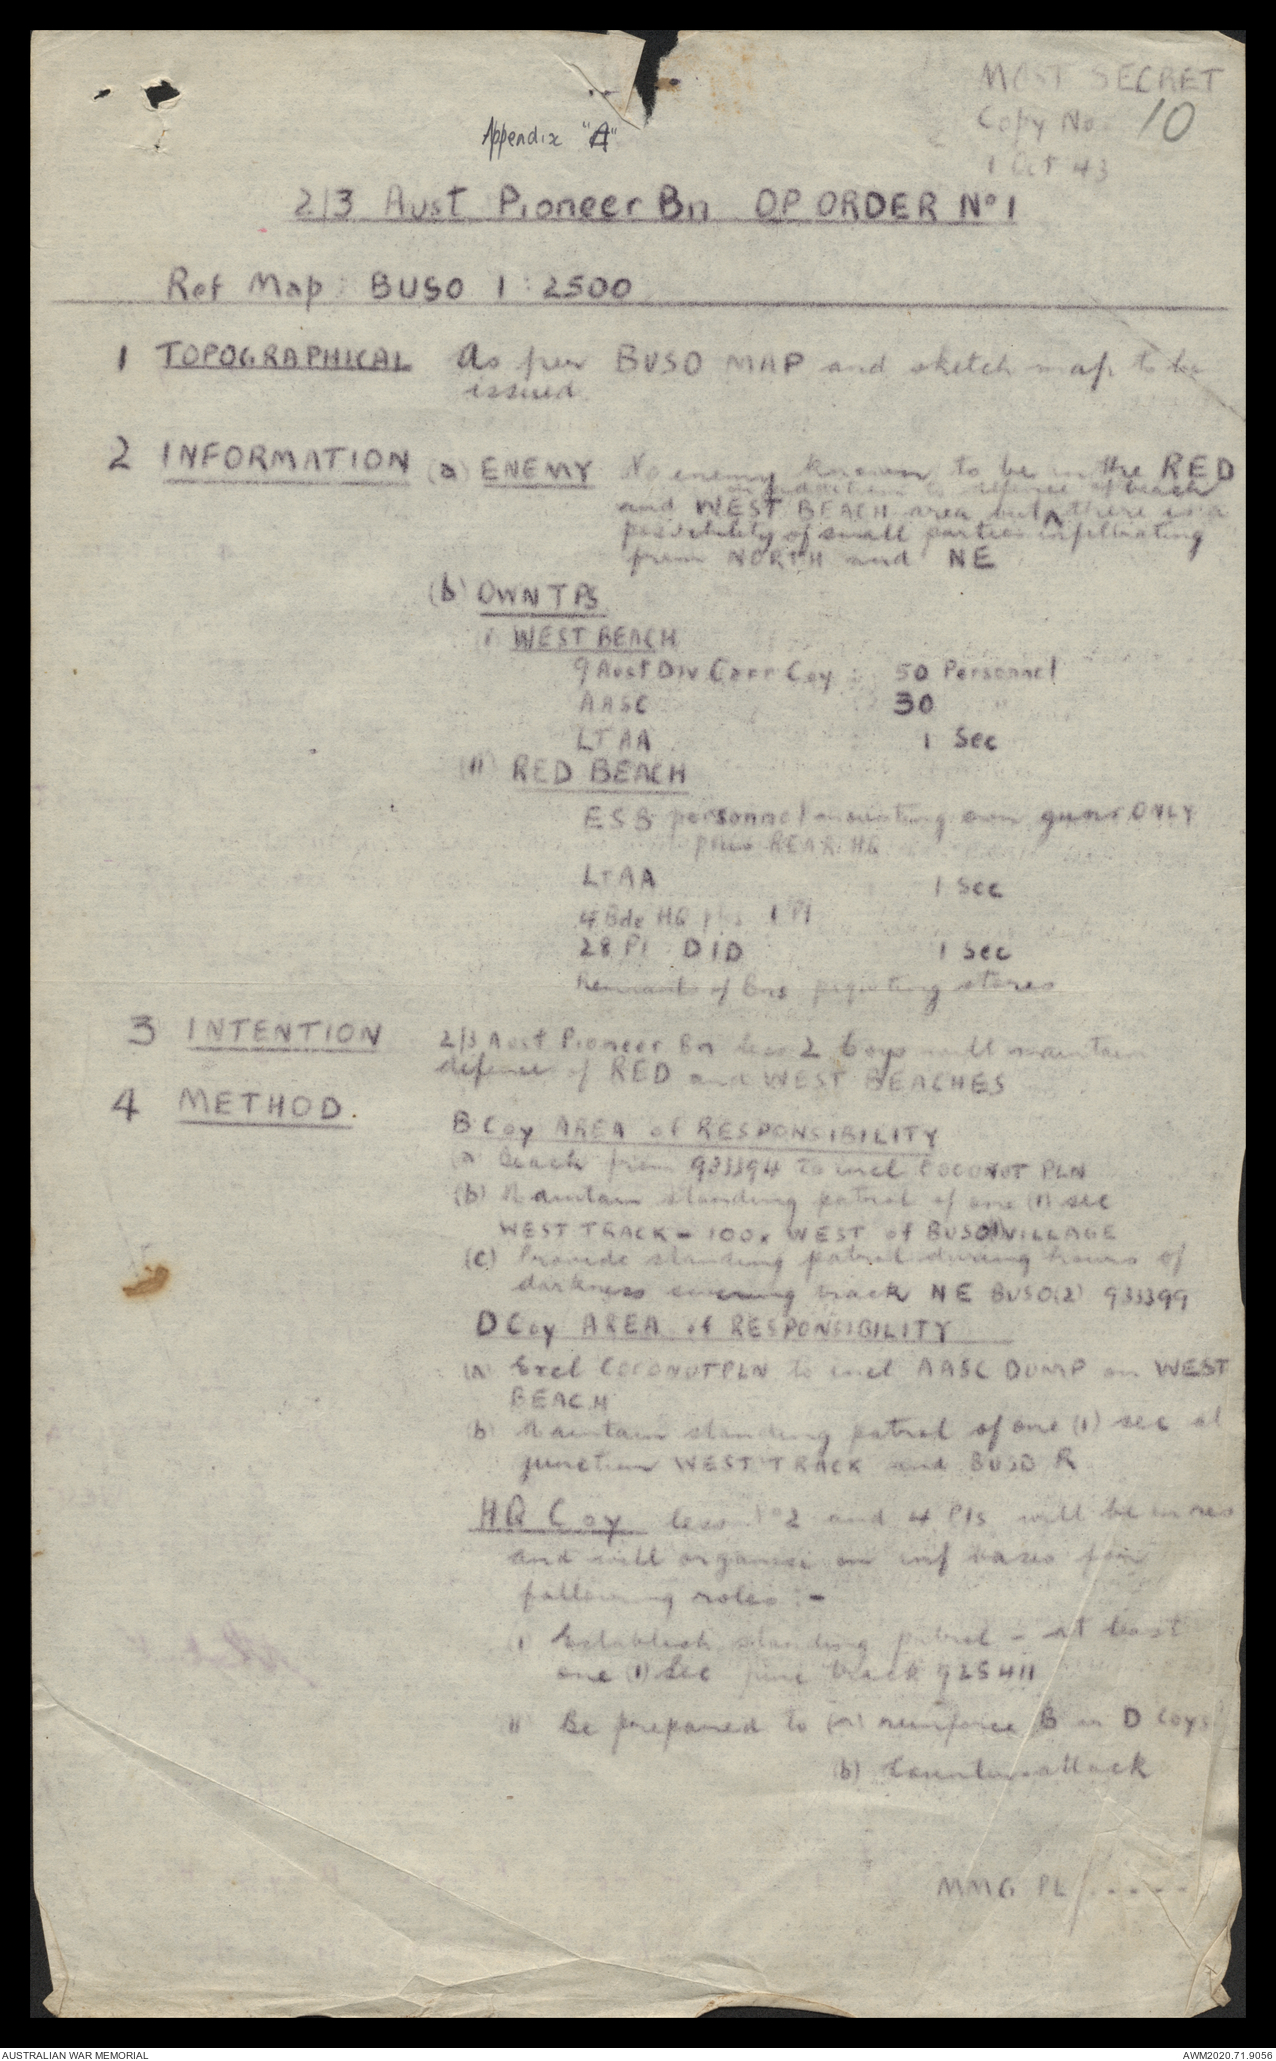 MOST SECRET
Copy No. 10
1 Oct 43
Appendix "A"
2/3 Aust Pioneer Bn OP ORDER No 1
Ref Map: BUSO 1:2500
1 TOPOGRAPHICAL As per BUSO MAP and sketch map to be
issued.
2 INFORMATION (a) ENEMY No enemy known to be in the RED
in addition to defence of beach
and WEST BEACH area but ^ there is a
possibility of small parties infiltrating
from NORTH and NE
(b) OWN TPS
i WEST BEACH
9 Aust Div Carr Coy : 50 Personnel
AASC 30 "
LT AA : 1 Sec
(ii) RED BEACH
ESB personnel mounting own guns ONLY
plus REAR HQ
LT AA 1 Sec
4 Bde HQ plus 1 Pl
28 Pl DID 1 Sec
Remnants of Bns piqueting stores
3 INTENTION 2/3 Aust Pioneer Bn less 2 Coys will maintain
defence of RED and WEST BEACHES
4 METHOD.
B Coy AREA of RESPONSIBILITY
(a) Beach from 933394 to incl COCONUT PLN
(b) Maintain standing patrol of one (1) sec
WEST TRACK - 100x WEST of BUSO(1) VILLAGE
(c) Provide standing patrol during hours of
darkness covering track NE BUSO(2) 933399
D Coy AREA of RESPONSIBILITY
(a) Excl COCONUT PLN to incl AASC DUMP on WEST
BEACH
(b) Maintain standing patrol of one (1) sec at
junction WEST TRACK and BUSO R
HQ Coy less No 2 and 4 Pls will be in res
and will organise on inf basis for
following roles :-
(i) Establish standing patrol - at least
one (1) Sec junc track 925411
ii Be prepared to (a) reinforce B or D Coys
(b) Counter attack
MMG PL/.....
AUSTRALIAN WAR MEMORIAL
AWM2020.71.9056